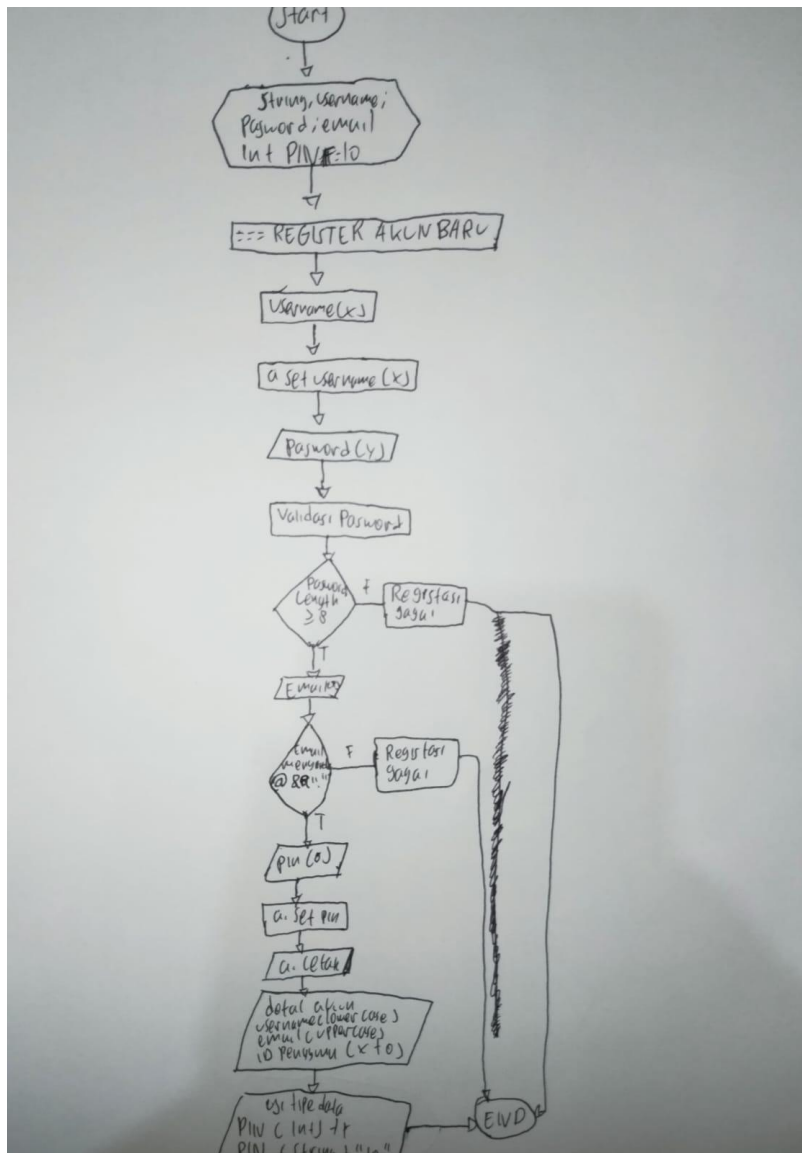 Start
String, username;
Pasword; email
Int PIN = 10
=== REGISTER AKUN BARU
Username(x)
a set username (x)
Pasword (y)
Validasi Pasword
Pasword
Length
≥ 8
F
Registasi
gagal
T
Email
Email
@ & "."
F
Registasi
gagal
T
pin (o)
a. set pin
a. cetak
detail akun
username (lower case)
email (uppercase)
ID pengguna (x + o)
tipe data
PIN (Int)
PIN (String)
END